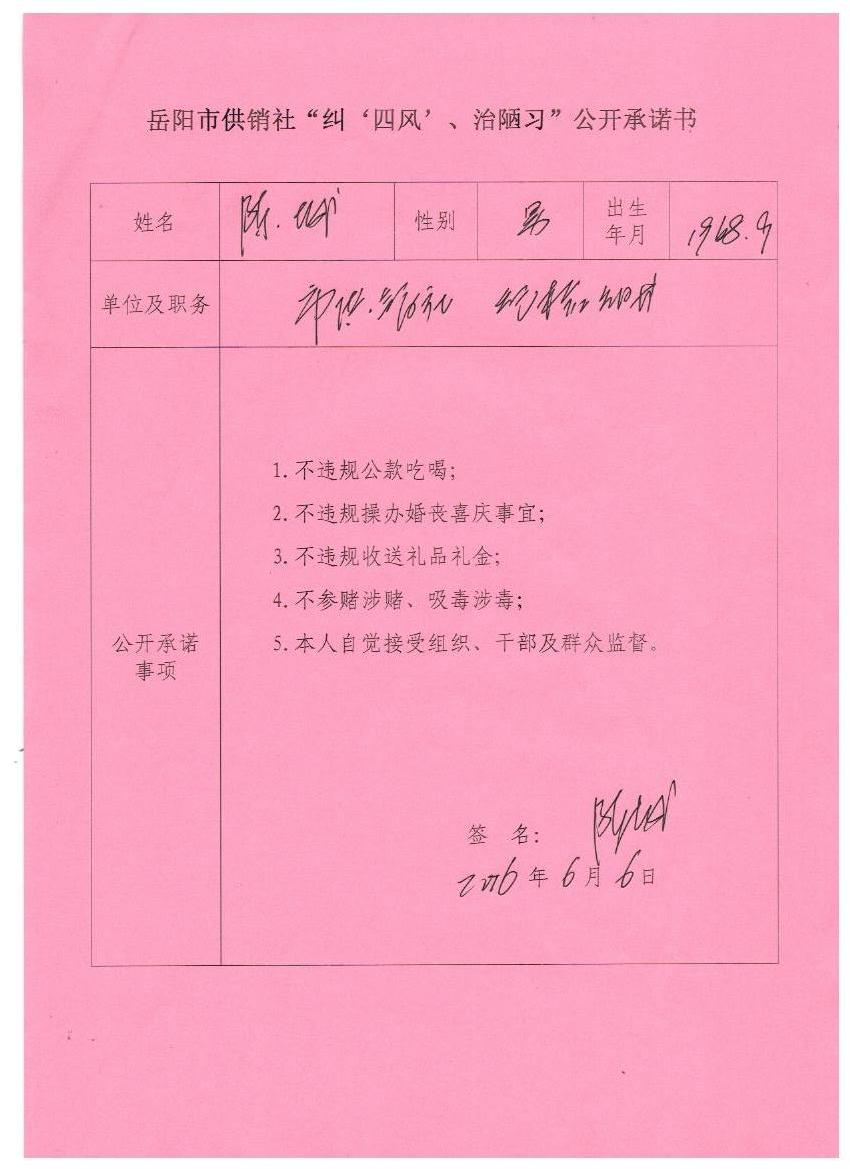 岳阳市供销社“纠‘四风’、治陋习”公开承诺书
姓名 陈 性别 男 出生年月 1968.9
单位及职务 市供销社 纪检组组长
公开承诺事项
1.不违规公款吃喝;
2.不违规操办婚丧喜庆事宜;
3.不违规收送礼品礼金;
4.不参赌涉赌、吸毒涉毒;
5.本人自觉接受组织、干部及群众监督。
签 名: 陈
2016年6月6日